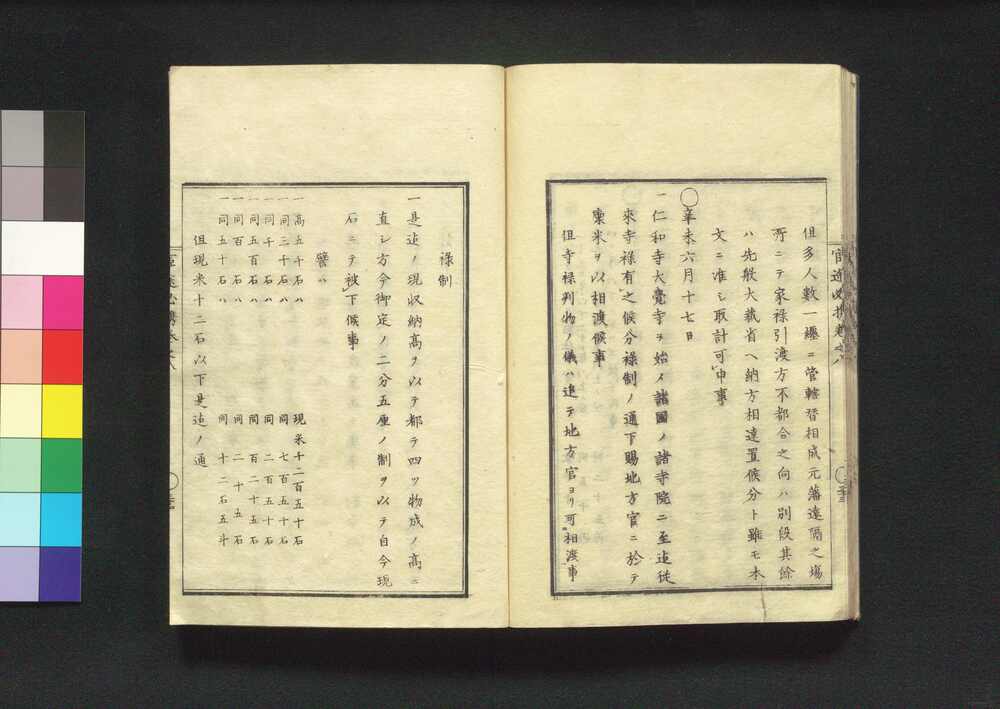 但多人數一纏ニ管轄替相成元藩遠隔之場
所ニテ家祿引渡方不都合之向ハ別段其餘
ハ先般大藏省ヘ納方相達置候分ト雖モ本
文ニ准シ取計可申事
○辛未六月十七日
一仁和寺大覺寺ヲ始メ諸國ノ諸寺院ニ至迄従
來寺祿有之候分祿制ノ通下賜地方官ニ於テ
稟米ヲ以相渡候事
但寺祿判物ノ儀ハ追テ地方官ヨリ可相渡事
祿制
一是迄ノ現収納高ヲ以テ都テ四ツ物成ノ高ニ
直シ方今御定ノ二分五厘ノ制ヲ以テ自今現
石ニテ被下候事
譬ハ
一高五千石ハ 現米千二百五十石
一同三千石ハ 同七百五十石
一同千石ハ 同二百五十石
一同五百石ハ 同百二十五石
一同百石ハ 同二十五石
一同五十石ハ 同十二石五斗
但現米十二石以下是迄ノ通